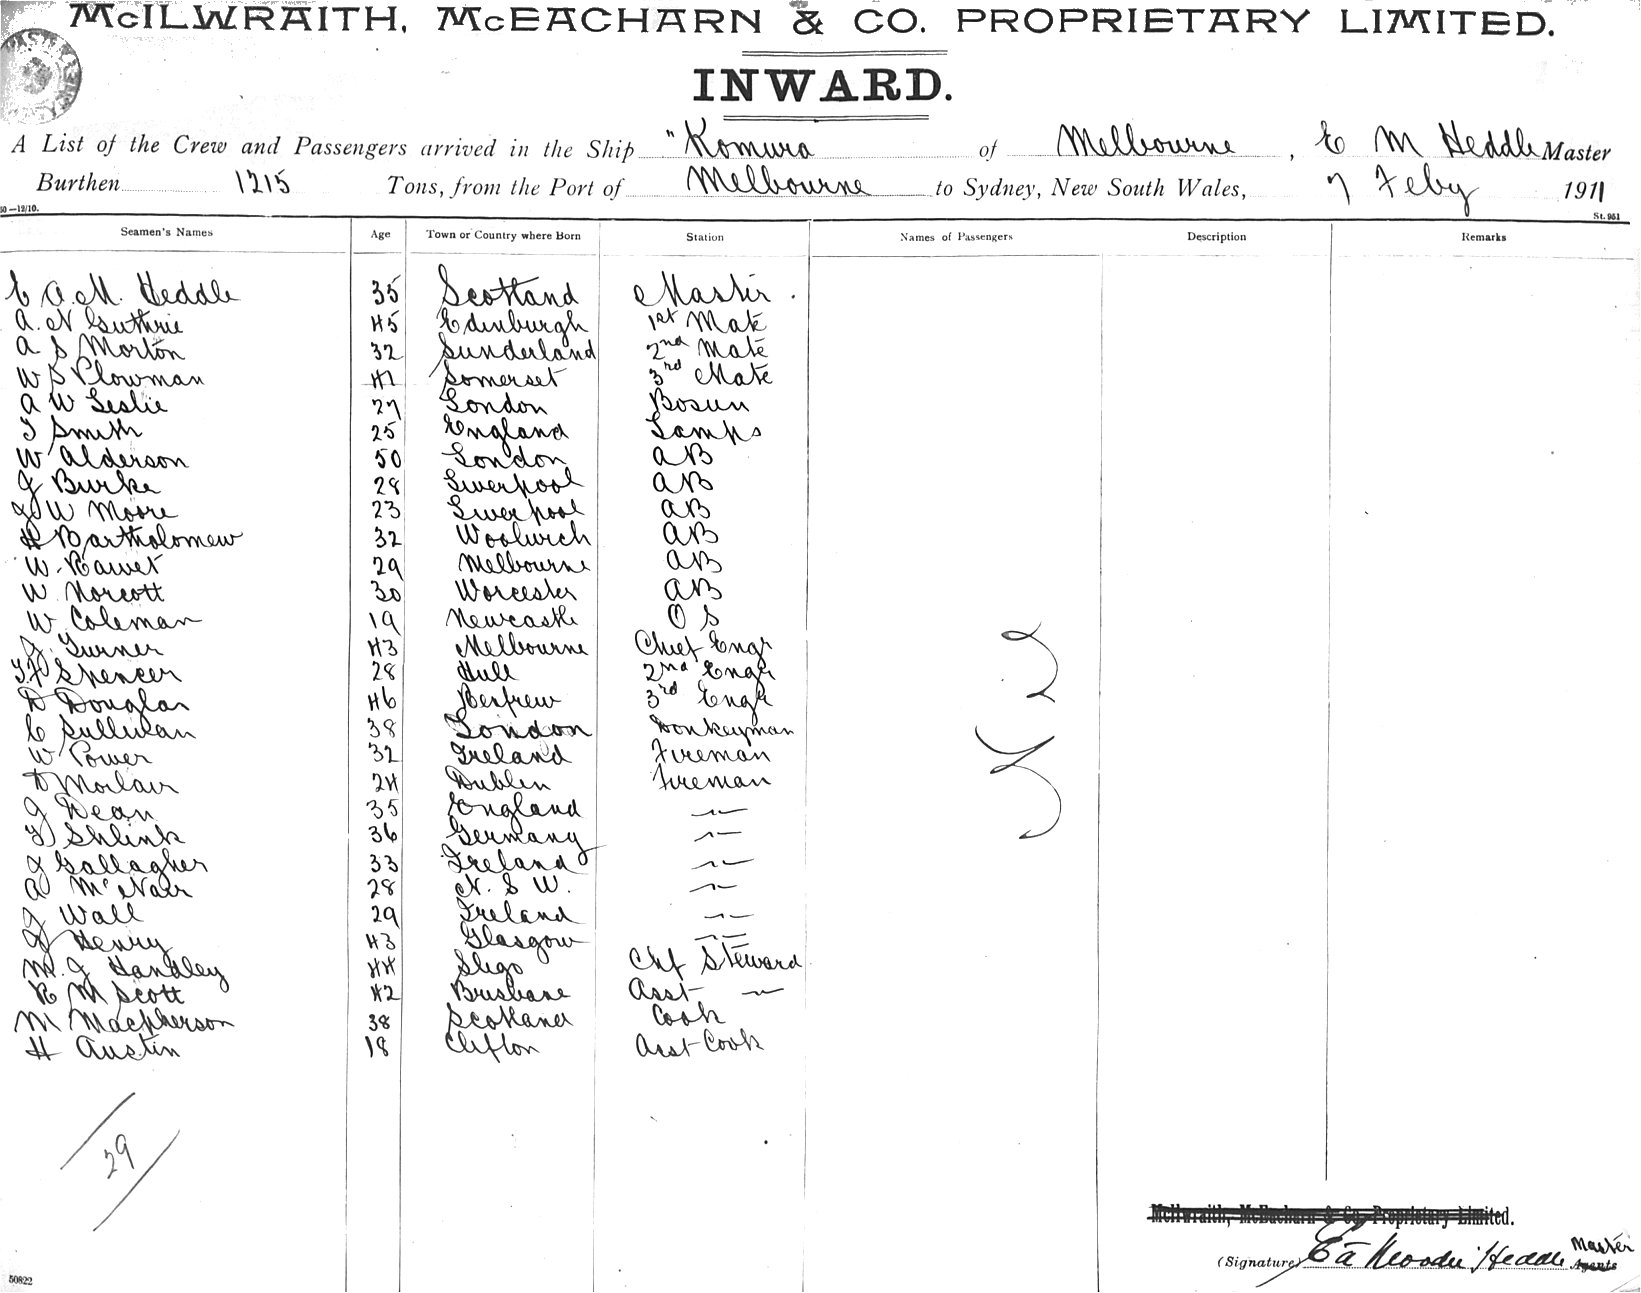 McILWRAITH, McEACHARN & CO. PROPRIETARY LIMITED.
INWARD.
A List of the Crew and Passengers arrived in the Ship "Komura of Melbourne, E M Heddle Master
Burthen 1215 Tons, from the Port of Melbourne to Sydney, New South Wales, 7 Feby 1911
50—12/10. St. 951
Seamen's Names Age Town or Country where Born Station Names of Passengers Description Remarks
E A. M. Heddle 35 Scotland Master.
A. N Guthrie 45 Edinburgh 1st Mate
A S Morton 32 Sunderland 2nd Mate
W S Plowman 42 Somerset 3rd Mate
A W Leslie 27 London Bosun
T Smith 25 England Lamps
W Alderson 50 London AB
J Burke 28 Liverpool AB
J W Moore 23 Liverpool AB
H Bartholomew 32 Woolwich AB
W. 29 Melbourne AB
W Norcott 30 Worcester AB
W Coleman 19 Newcastle O S
J. Turner 43 Melbourne Chief Engr
Spencer 28 Hull 2nd Engr
D Douglas 46 Renfrew 3rd Engr
C Sullivan 38 London Donkeyman
W Power 32 Ireland Fireman
D 24 Dublin Fireman
J Dean 35 England —〃—
Shlink 36 Germany —〃—
J Gallagher 33 Ireland —〃—
A McNair 28 N. S W. —〃—
J Wall 29 Ireland —〃—
J Henry 43 Glasgow —〃—
M. J Handley 44 Sligo Chf Steward
R M Scott 42 Brisbane Asst —〃—
M Macpherson 38 Scotland Cook
H Austin 18 Clifton Asst Cook
29
McIlwraith, McEacharn & Co. Proprietary Limited.
(Signature) Heddle Master Agents
50822